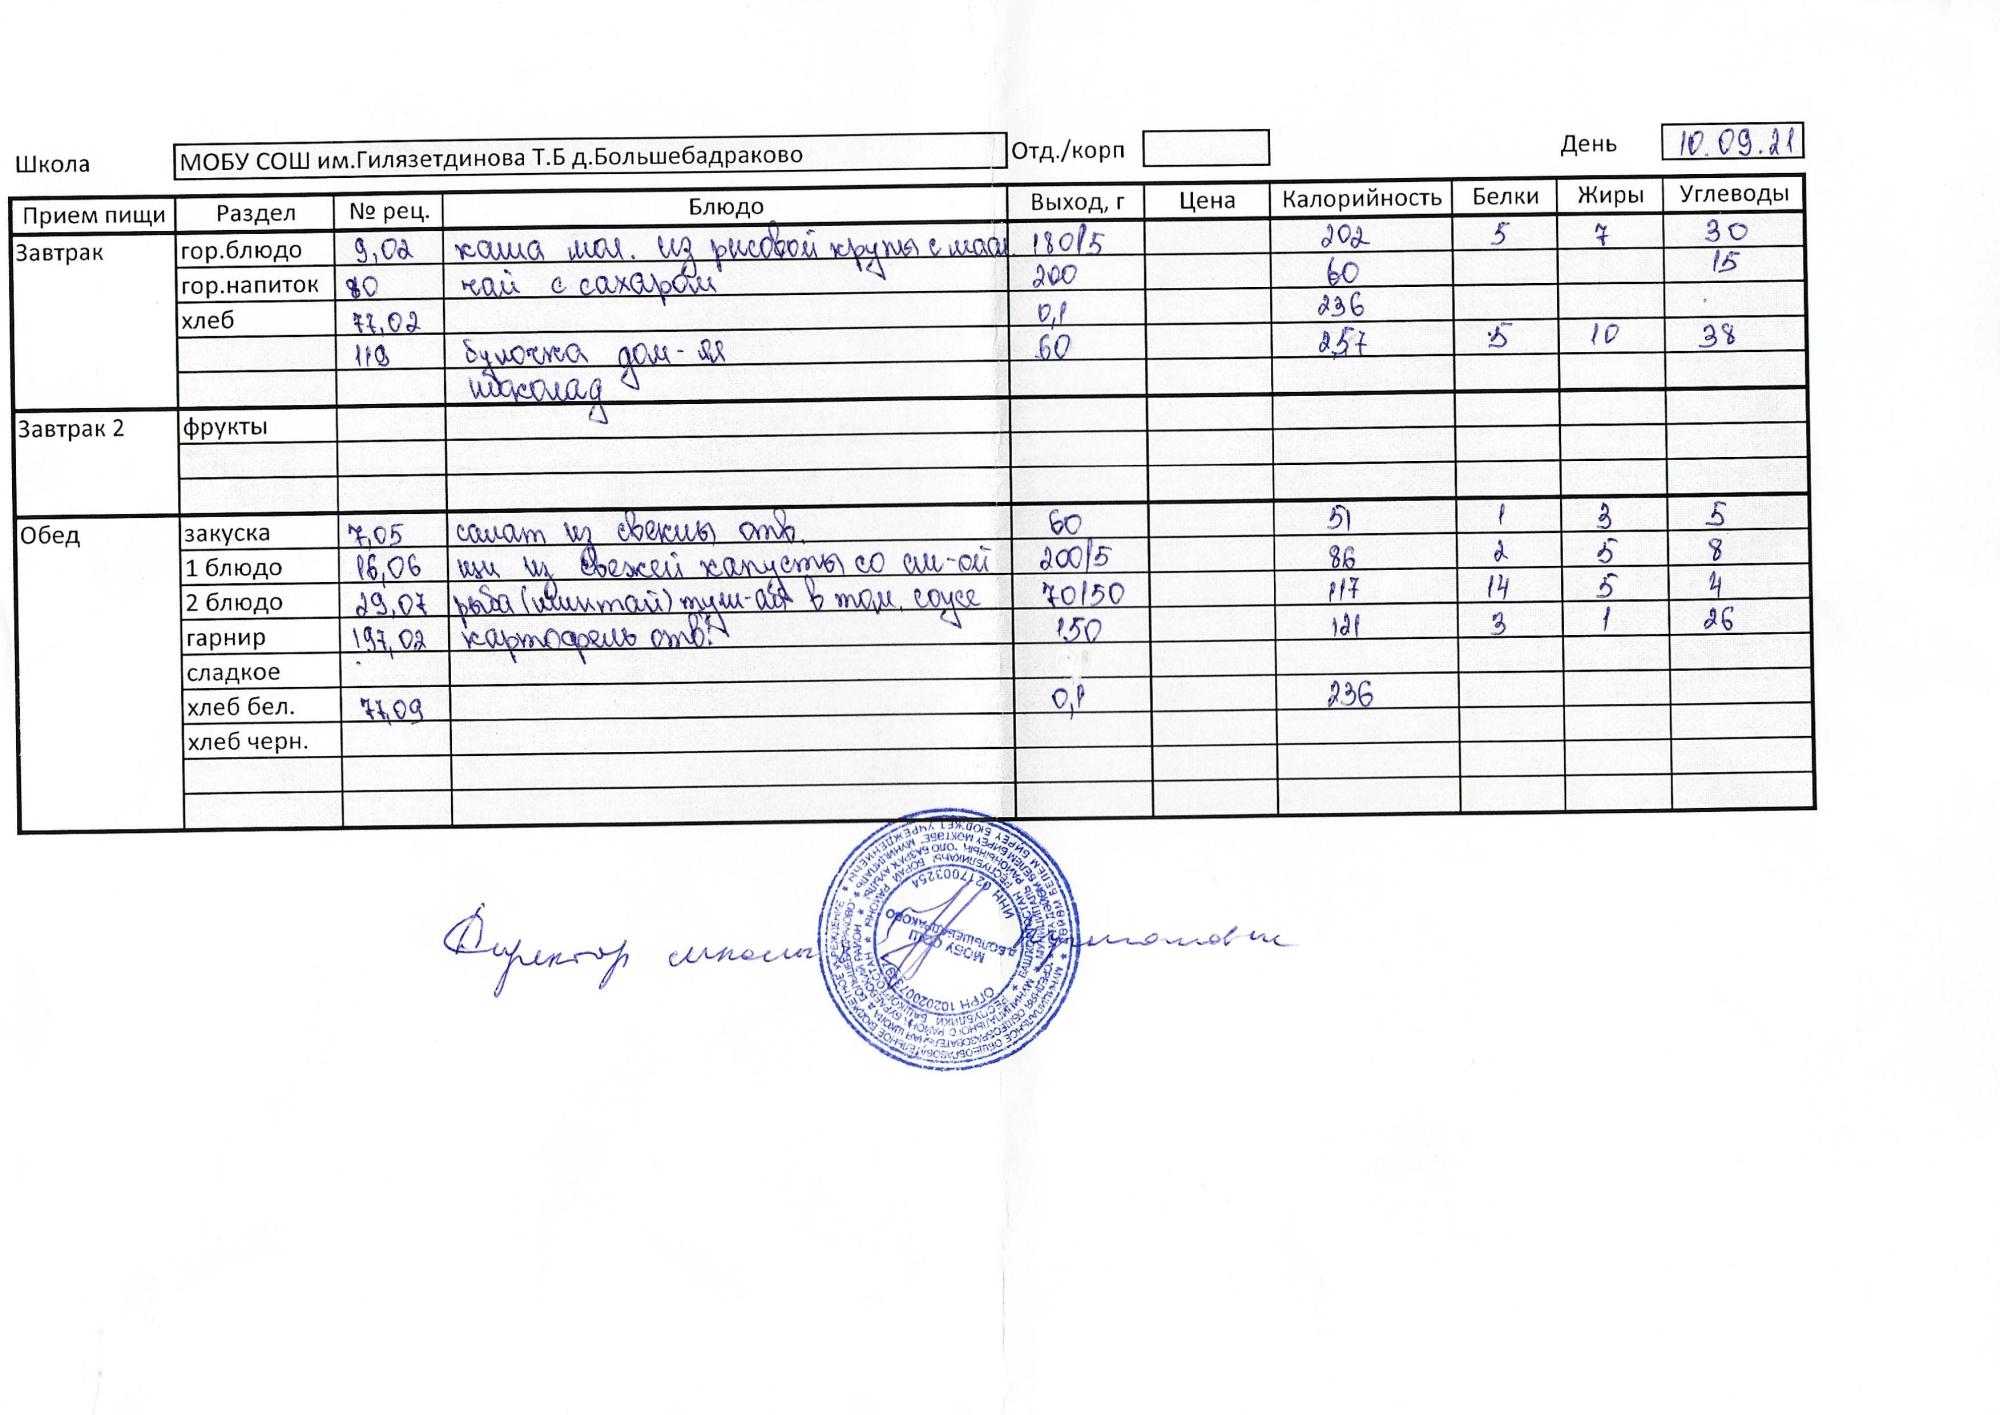 Школа МОБУ СОШ им.Гилязетдинова Т.Б д.Большебадраково Отд./корп День 10.09.21
Прием пищи Раздел № рец. Блюдо Выход, г Цена Калорийность Белки Жиры Углеводы
Завтрак гор.блюдо 9,02 каша мол. из рисовой крупы с масл. 180/5 202 5 7 30
гор.напиток 80 чай с сахаром 200 60 15
хлеб 77,02 0,1 236
119 булочка дом-яя 60 257 5 10 38
шоколад
Завтрак 2 фрукты
Обед закуска 7,05 салат из свеклы отв. 60 51 1 3 5
1 блюдо 16,06 щи из свежей капусты со см-ой 200/5 86 2 5 8
2 блюдо 29,07 рыба (минтай) туш-ая в том. соусе 70/50 117 14 5 4
гарнир 197,02 картофель отв. 150 121 3 1 26
сладкое
хлеб бел. 77,09 0,1 236
хлеб черн.
Директор школы
МОБУ СОШ
д.БОЛЬШЕБАДРАКОВО
ИНН 0217003254